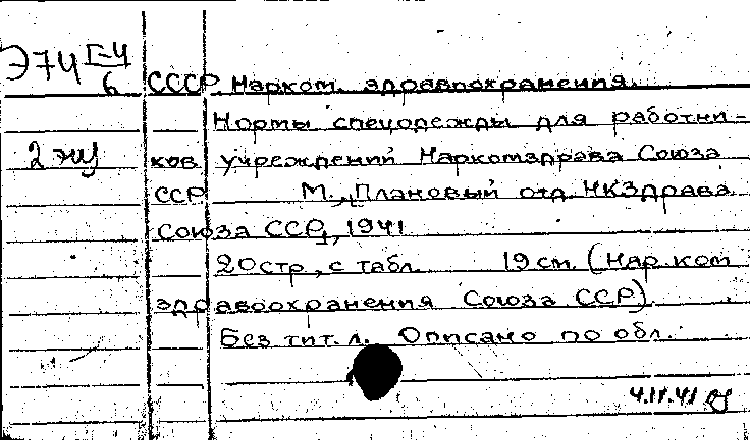 Э74 Г-4
6
СССР Нарком. здравоохранения.
Нормы спецодежды для работни-
2 экз
ков учреждений Наркомздрава Союза
ССР М., Плановый отд. НКЗдрава
Союза ССР, 1941
20 стр., с табл. 19 см. (Нар. ком
здравоохранения Союза ССР)
Без тит. л. Описано по обл.
4.IV.41